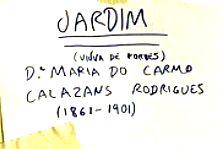 JARDIM
(VIÚVA DE TORRES)
D.ª MARIA DO CARMO
CALAZANS RODRIGUES
(1861-1901)